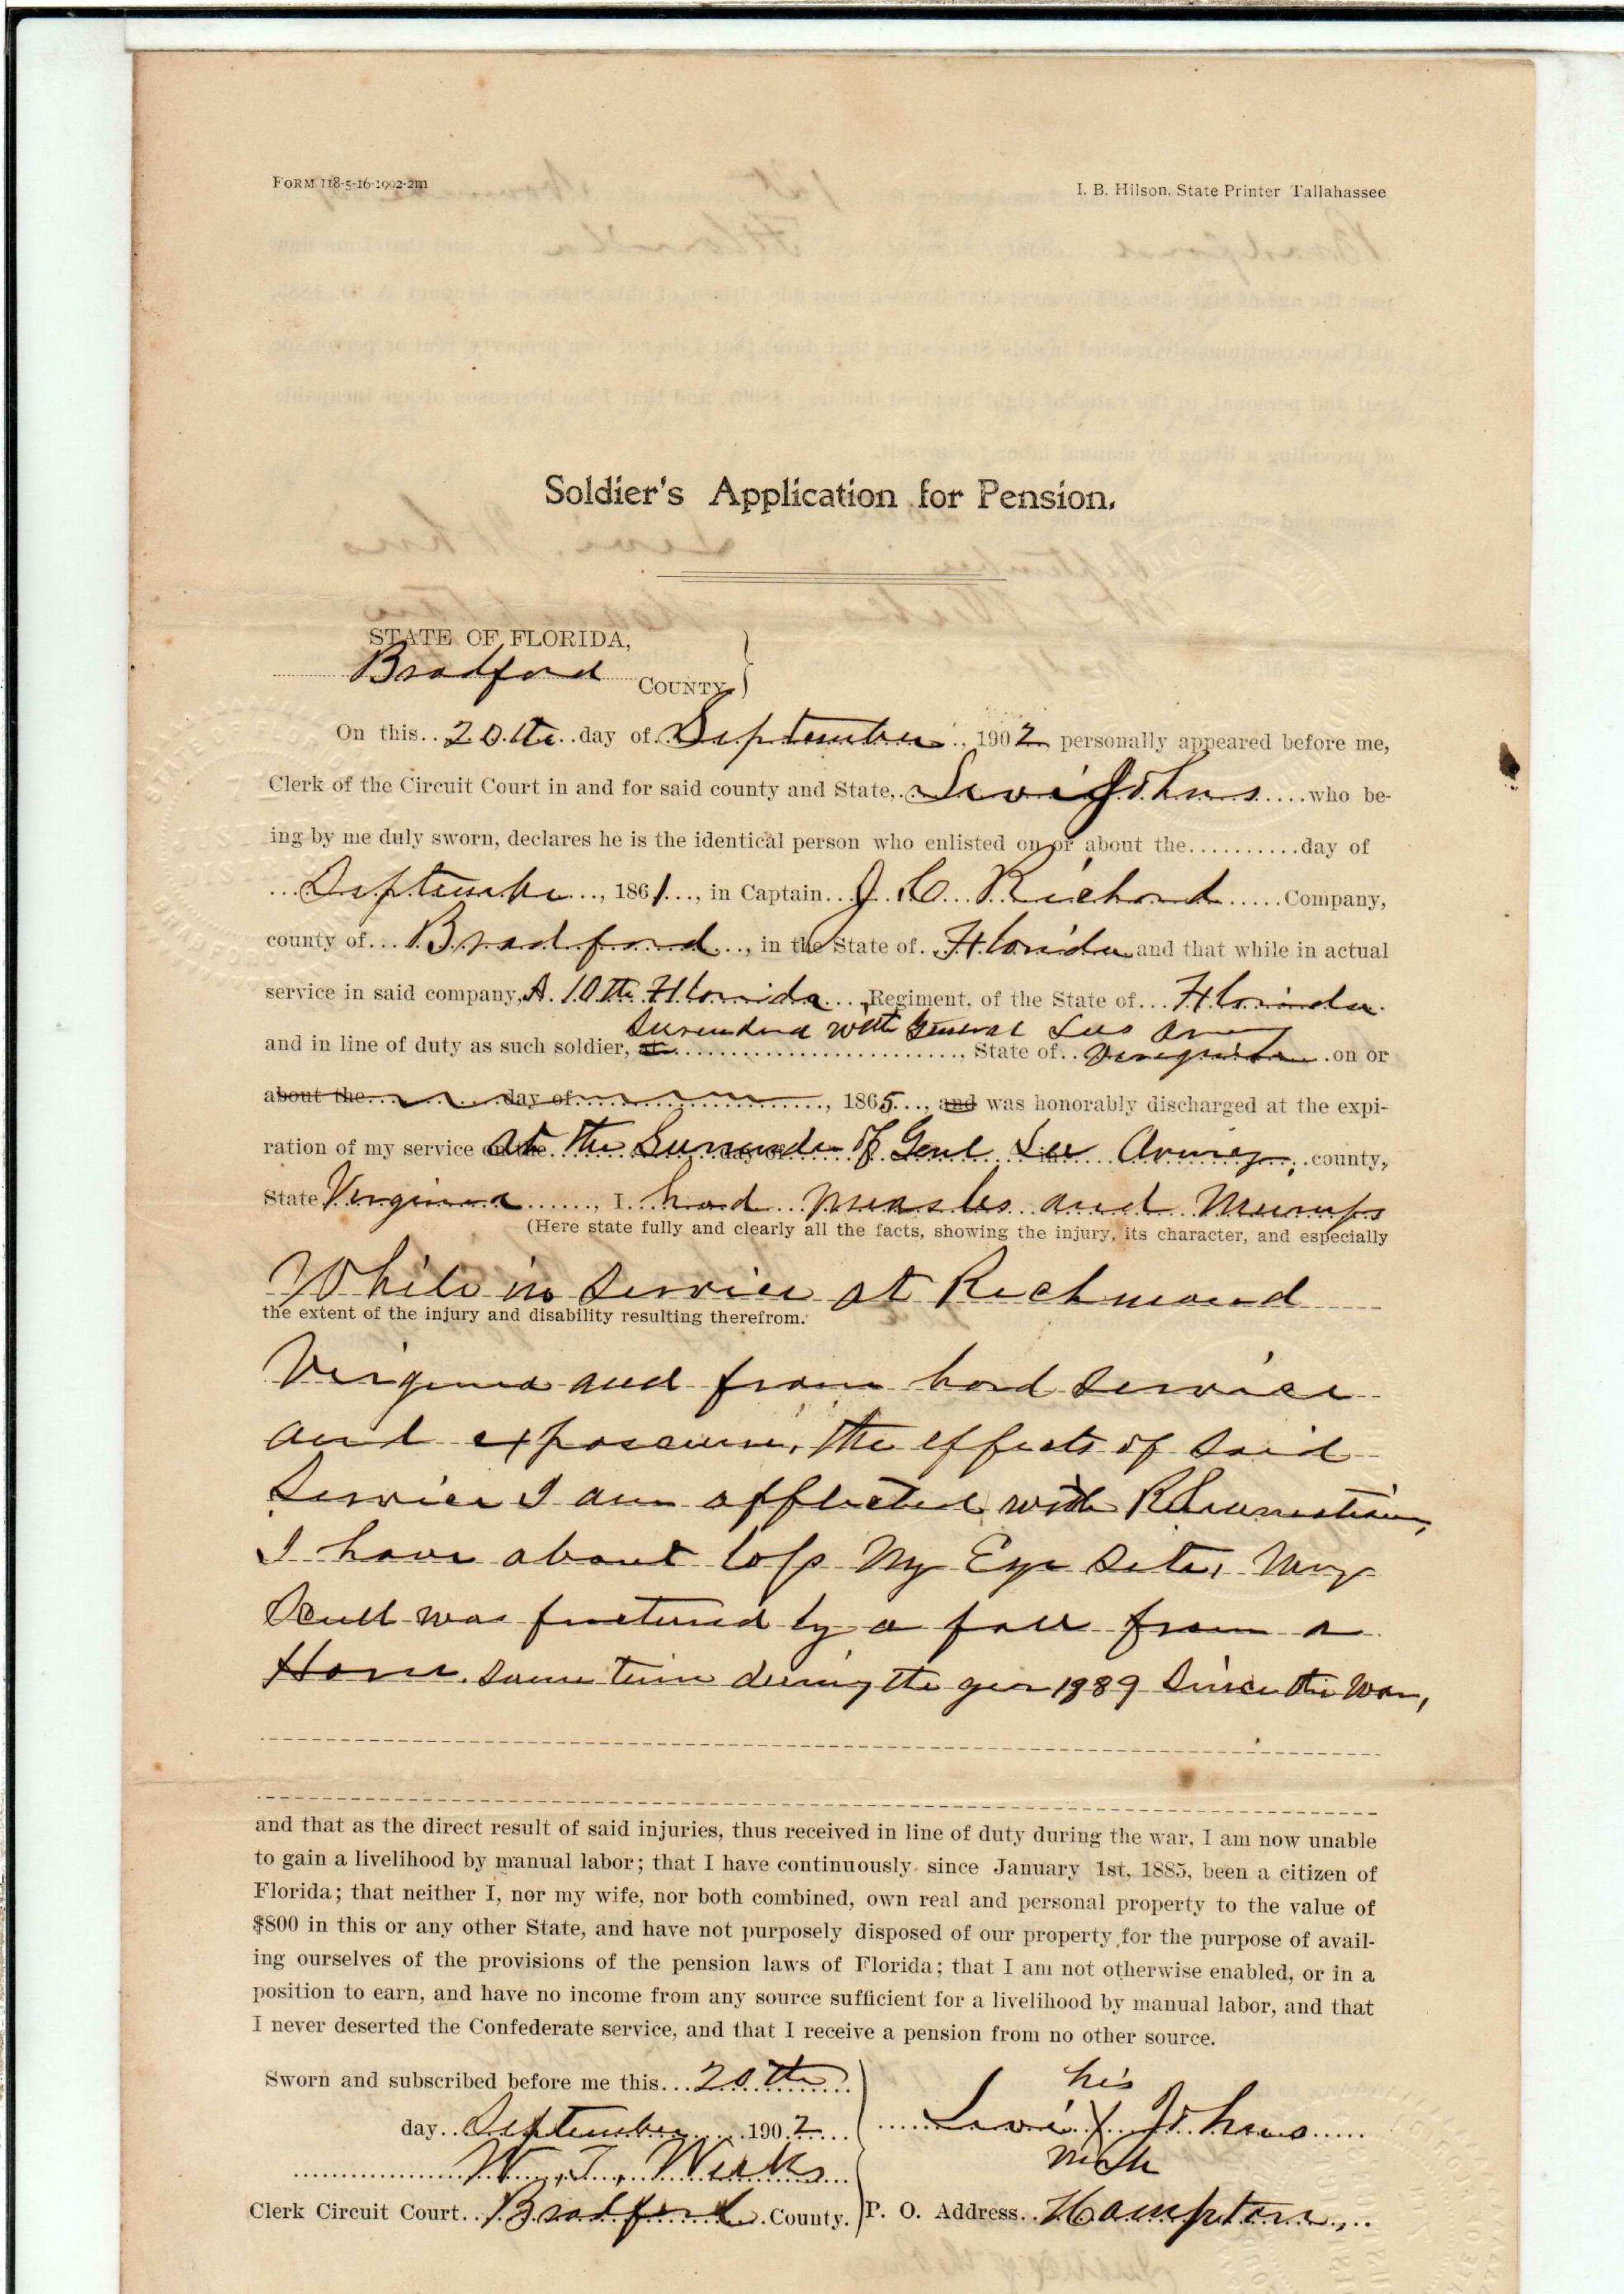 FORM 118-5-16-1902-2m
I. B. Hilson, State Printer Tallahassee
Soldier's Application for Pension.
STATE OF FLORIDA,
Bradford COUNTY
On this 20th day of September 1902 personally appeared before me,
Clerk of the Circuit Court in and for said county and State, Levi Johns who be-
ing by me duly sworn, declares he is the identical person who enlisted on or about the..........day of
September, 1861, in Captain J. C. Richard Company,
county of Bradford, in the State of Florida and that while in actual
service in said company, A. 10th Florida Regiment, of the State of Florida
Surenderd with General Lees Army
and in line of duty as such soldier, at, State of Virginia on or
about the day of, 1865, and was honorably discharged at the expi-
ration of my service at the Surrender of Genl Lee Army, county,
State Virginia, I had measles and Mumps
(Here state fully and clearly all the facts, showing the injury, its character, and especially
While in Service at Richmond
the extent of the injury and disability resulting therefrom.
Virginia and from hard Service
and exposure, the effects of Said
Service I am afflicted with Rheumatism,
I have about loss My Eye Site, My
Scull was fractured by a fall from a
Horse. some time during the year 1889 Since the War,
and that as the direct result of said injuries, thus received in line of duty during the war, I am now unable
to gain a livelihood by manual labor; that I have continuously since January 1st, 1885, been a citizen of
Florida; that neither I, nor my wife, nor both combined, own real and personal property to the value of
$800 in this or any other State, and have not purposely disposed of our property for the purpose of avail-
ing ourselves of the provisions of the pension laws of Florida; that I am not otherwise enabled, or in a
position to earn, and have no income from any source sufficient for a livelihood by manual labor, and that
I never deserted the Confederate service, and that I receive a pension from no other source.
Sworn and subscribed before me this 20th
day September 1902
his
Levi X Johns
mark
W. T. Weeks
Clerk Circuit Court Bradford County.
P. O. Address Hampton,